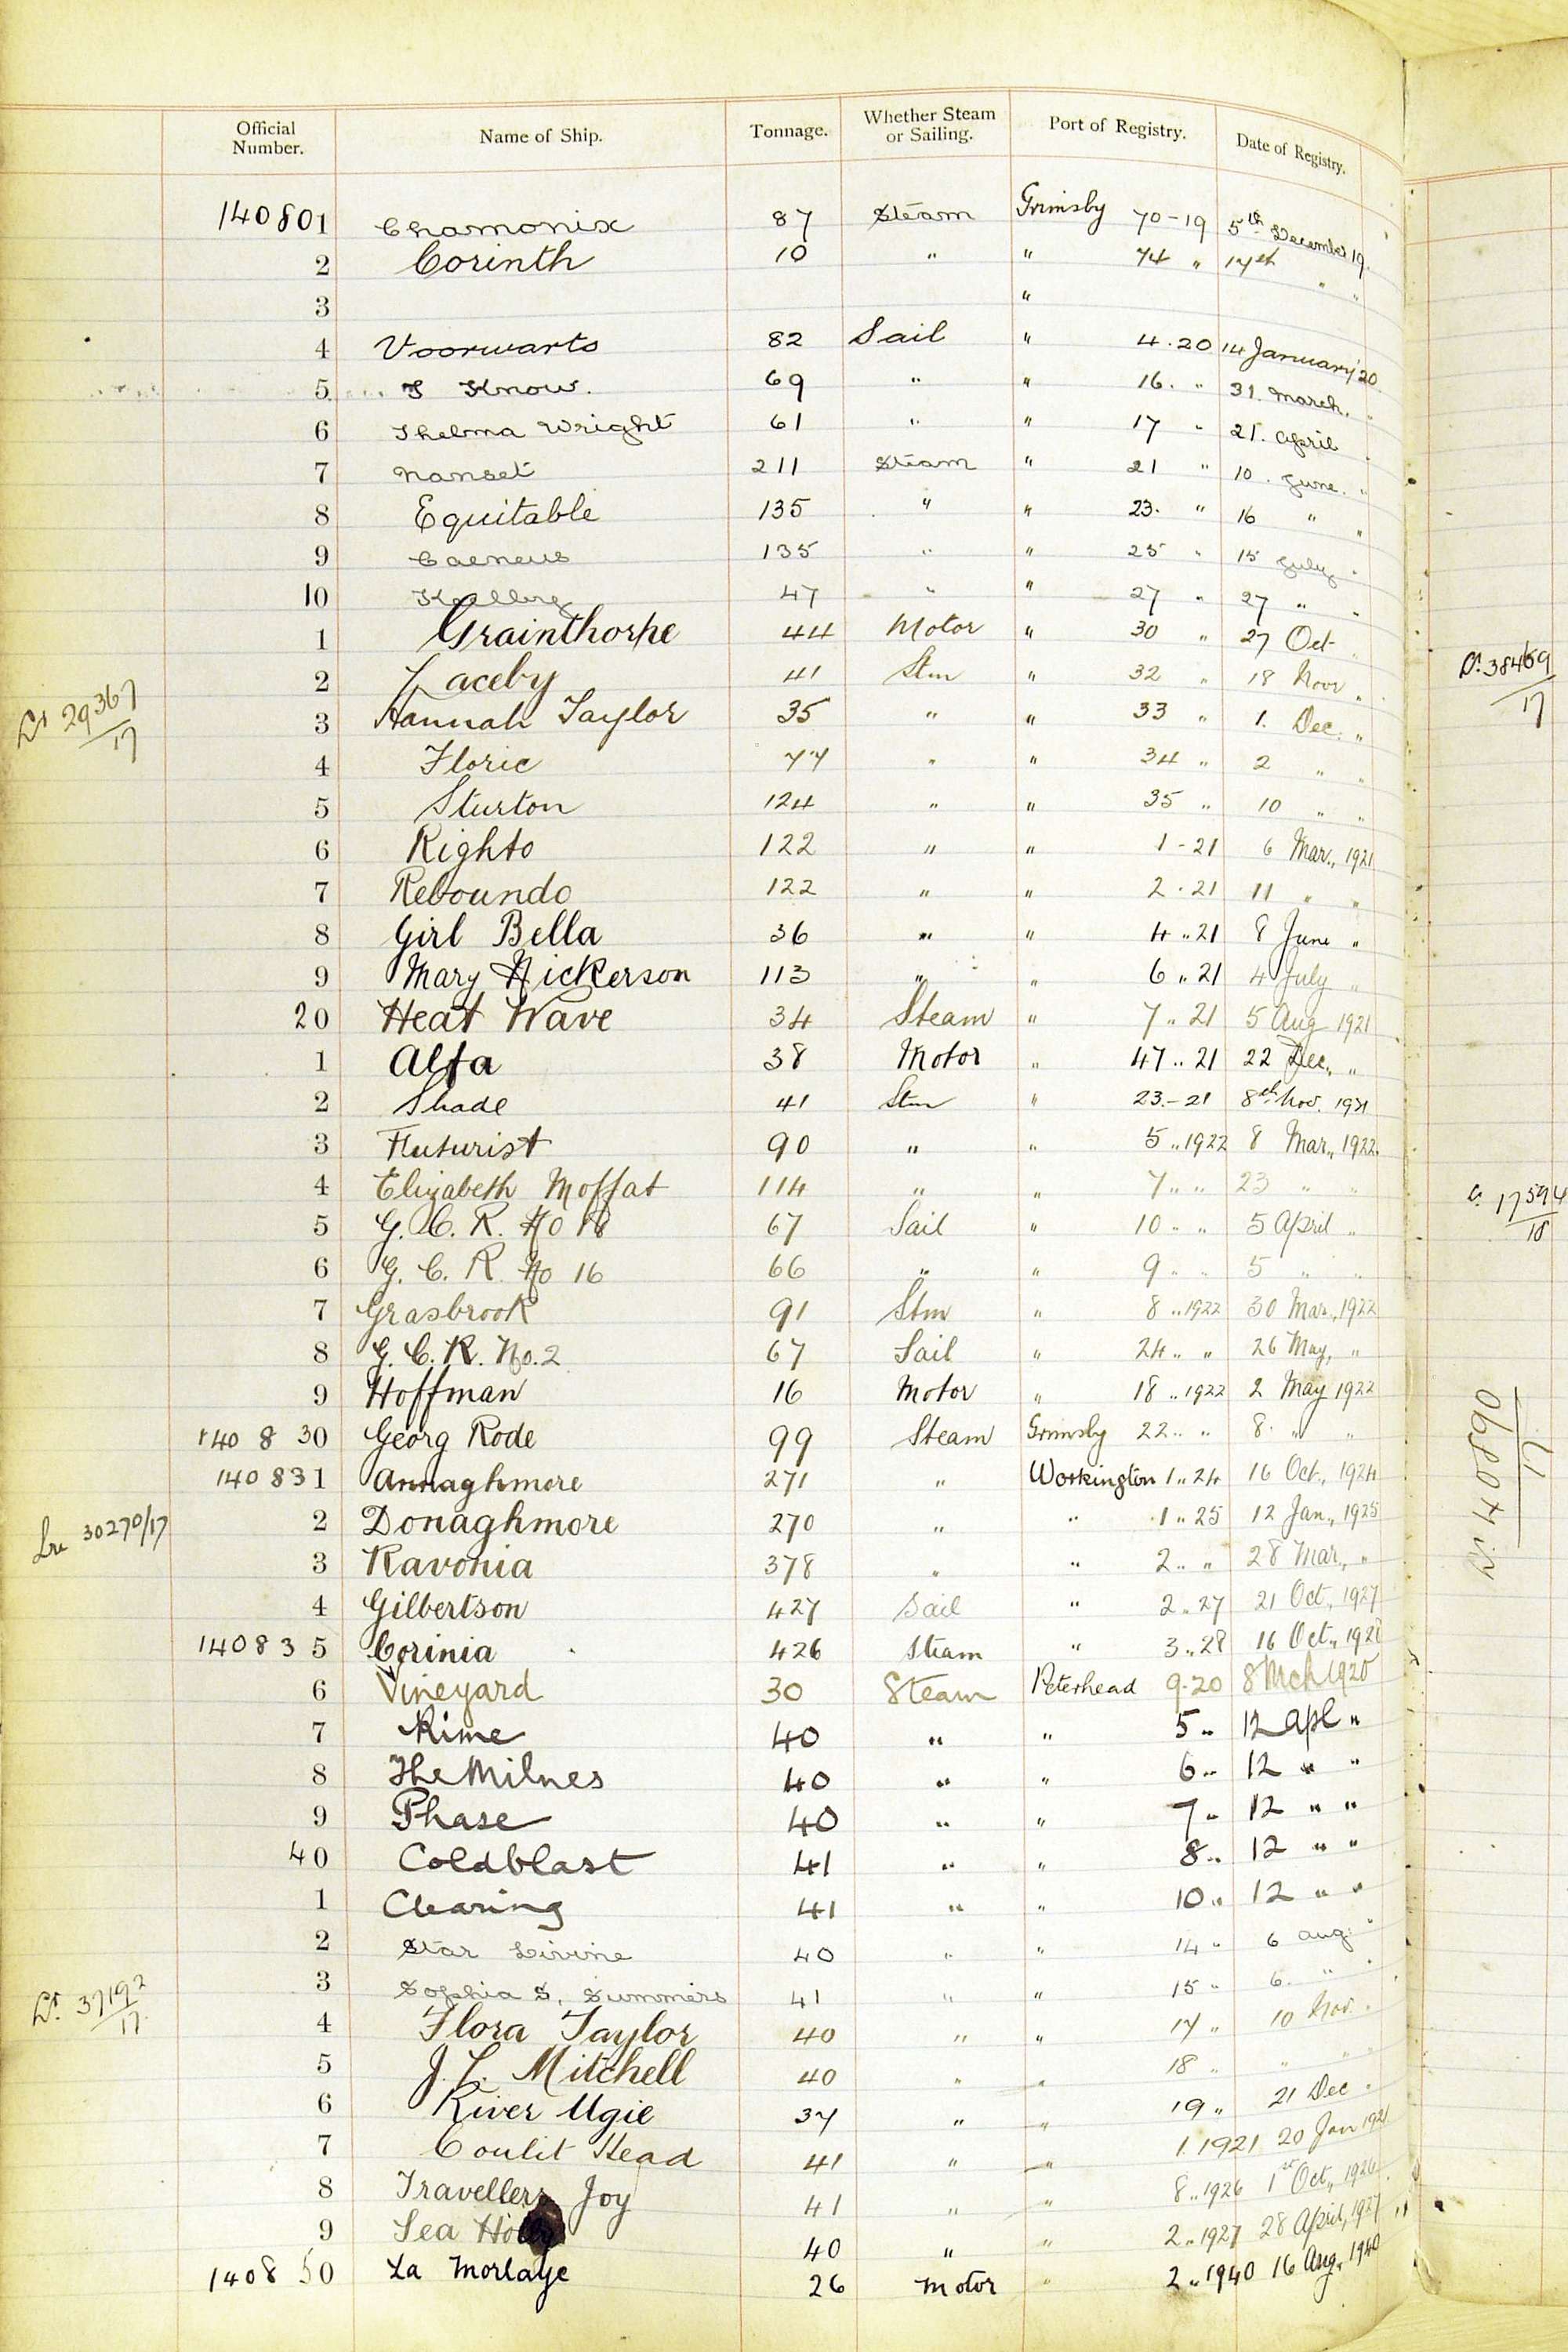 Official Number. Name of Ship. Tonnage. Whether Steam or Sailing. Port of Registry. Date of Registry.
140801 Chamonix 87 Steam Grimsby 70-19 5th December 19.
2 Corinth 10 " " 74 " 17th " "
3 "
4 Voorwarts 82 Sail " 4.20 14 January '20
5 I Know. 69 " " 16. " 31. March. "
6 Thelma Wright 61 " " 17 " 21. April
7 Nanset 211 Steam " 21 " 10. June. "
8 Equitable 135 " " 23. " 16 " "
9 Caeneus 135 " " 25 " 15 July "
10 47 " " 27 " 27 " "
1 Grainthorpe 44 Motor " 30 " 27 Oct "
2 Laceby 41 Stm " 32 " 18 Novr "
3 Hannah Taylor 35 " " 33 " 1. Dec. "
4 Floric 77 " " 34 " 2 " "
5 Sturton 124 " " 35 " 10 " "
6 Righto 122 " " 1-21 6 Mar., 1921
7 Reboundo 122 " " 2.21 11 " "
8 Girl Bella 36 " " 4..21 8 June "
9 Mary Hickerson 113 " " 6..21 4 July "
20 Heat Wave 34 Steam " 7..21 5 Aug 1921
1 Alfa 38 Motor " 47..21 22 Dec., "
2 Shade 41 Stm " 23.-21 8th Nov. 1921
3 Futurist 90 " " 5..1922 8 Mar., 1922.
4 Elizabeth Moffat 114 " " 7.. " 23 " "
5 G. C. R. No 18 67 Sail " 10 " " 5 April "
6 G. C. R. No 16 66 " " 9 " " 5 " "
7 Grasbrook 91 Stm " 8..1922 30 Mar., 1922
8 G. C. R. No. 2 67 Sail " 24.. " 26 May, "
9 Hoffman 16 Motor " 18..1922 2 May 1922
140 8 30 Georg Rode 99 Steam Grimsby 22.. " 8. " "
140 831 Annaghmore 271 " Workington 1..24 16 Oct., 1924
2 Donaghmore 270 " " 1..25 12 Jan., 1925
3 Ravonia 378 " " 2.. " 28 Mar., "
4 Gilbertson 427 Sail " 2..27 21 Oct., 1927
14083 5 Corinia 426 Steam " 3..28 16 Oct., 1928
6 Vineyard 30 Steam Peterhead 9.20 8 Mch 1920
7 Rime 40 " " 5 " 12 Apl "
8 The Milnes 40 " " 6 " 12 " "
9 Phase 40 " " 7 " 12 " "
40 Coldblast 41 " " 8 " 12 " "
1 Clearing 41 " " 10 " 12 " "
2 Star Divine 40 " " 14 " 6 Aug. "
3 Sophia S. Summers 41 " " 15 " 6. " "
4 Flora Taylor 40 " " 17 " 10 Nov. "
5 J. L. Mitchell 40 " " 18 " " "
6 River Ugie 37 " " 19 " 21 Dec "
7 Coulit Head 41 " " 1.1921 20 Jan 1921
8 Travellers Joy 41 " " 8..1926 1st Oct., 1926
9 Sea Holly 40 " " 2..1927 28 April, 1927
1408 50 La Morlaye 26 Motor " 2..1940 16 Aug., 1940
Lr 29367/17
Lre 30270/17
Lr. 37192/17
Lr. 38469/17
17594/18
040890/17